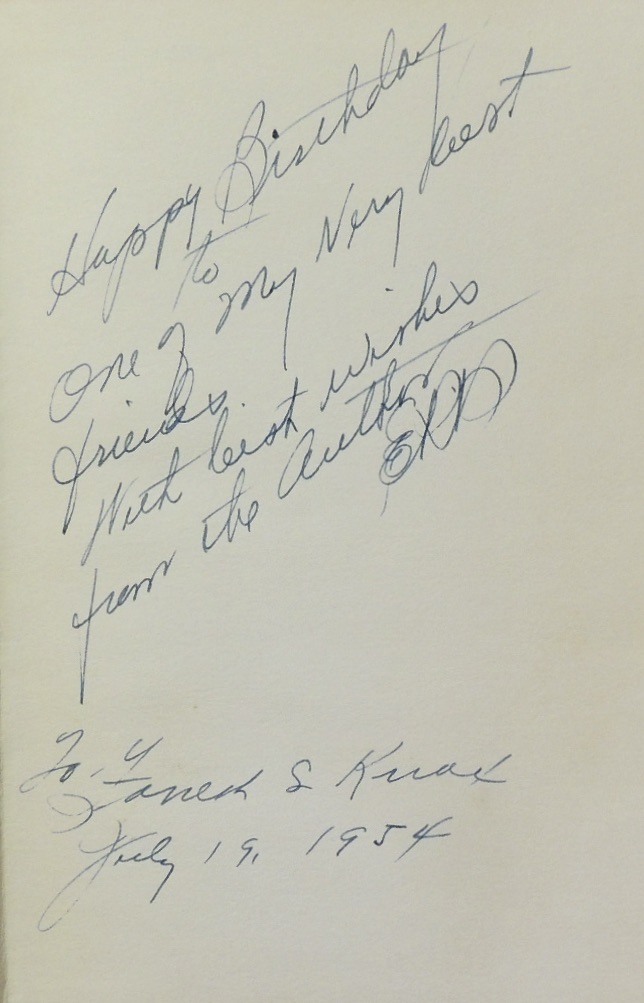 Happy Birthday
to
One of My Very best
friends
With best wishes
from the Author
To,
S Knox
July 19, 1954